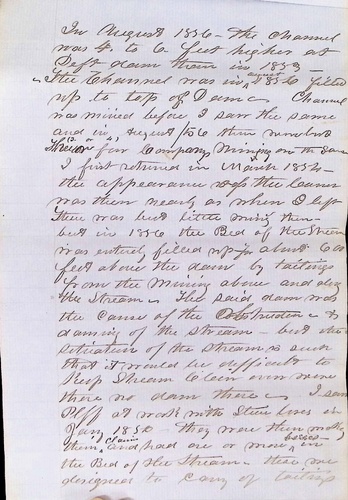 In August 1856 - the Channel
was 4. to 6 feet higher at
Deft dam then in 1853 -
The Channel was in august 1856 filled
up to top of Dam - Channel
was mined before I saw the same
and in August 56 there were but
three or four Companys Mining on the
I first returned in March 1854 -
the appearance of the
was then nearly as when I left
There was but little mining then -
but in 1856 the Bed of the Stream
was entirely filled up for about 600
feet above the dam by tailings
from the Mining above and along
the Stream - The said dam was
the Cause of the Obstruction &
daming of the stream - but the
situation of the stream is such
that it would be difficult to
Keep Stream Clean even were
there no dam there - I saw
Plff at work with Stem lines in
Jany 185 - they were then working
their Claim and had one or more boxes in
the Bed of the Stream - these were
designed to Carry of tailings